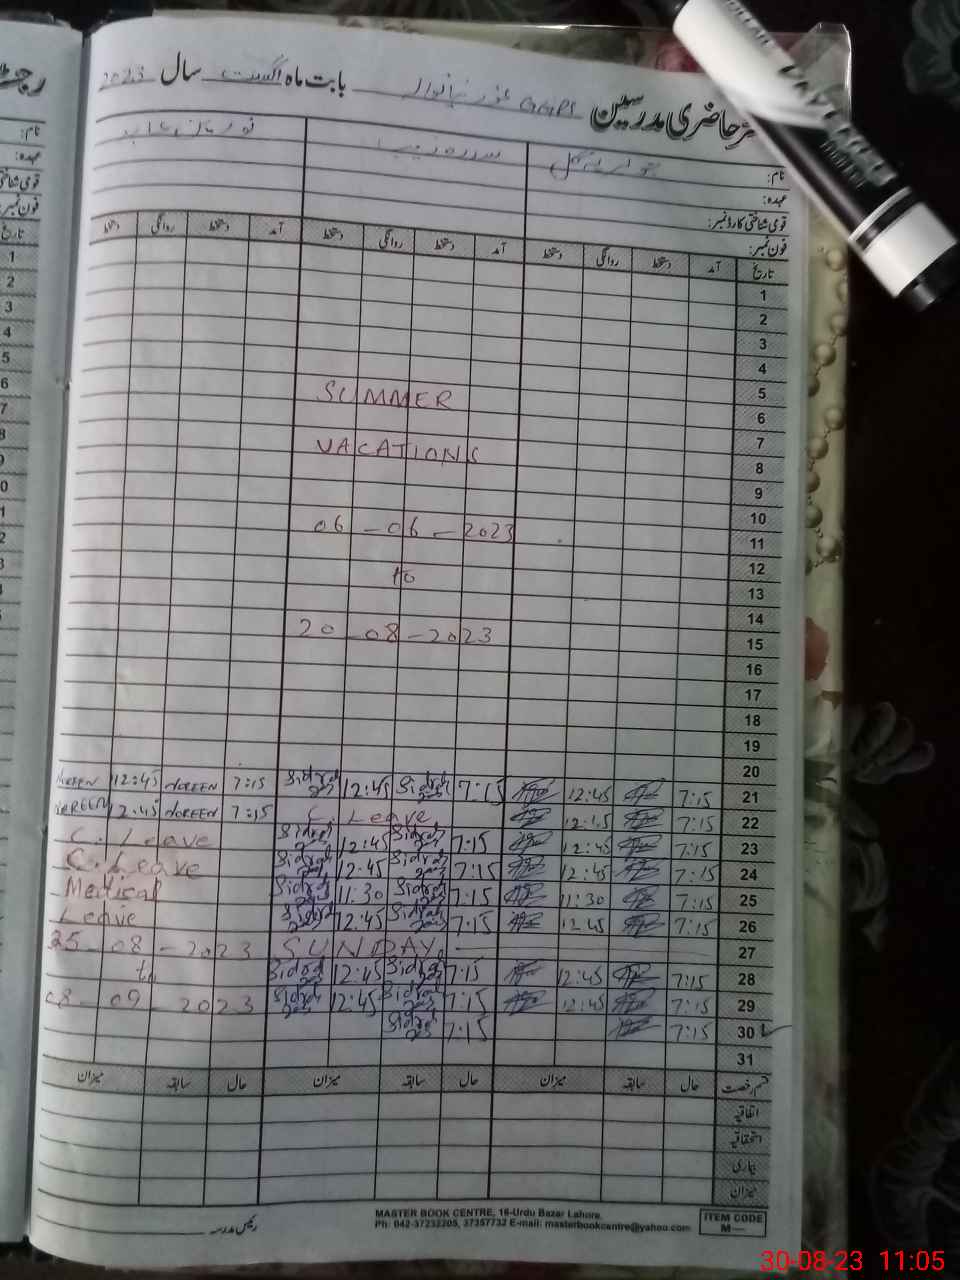 رجسٹر حاضری مدرسین GGPS بابت ماہ اگست سال 2023
نام:
عہدہ:
قومی شناختی کارڈ نمبر:
فون نمبر:
تاریخ آمد دستخط روانگی دستخط آمد دستخط روانگی دستخط آمد دستخط روانگی دستخط
1
2
3
4
5
SUMMER
6
7
VACATIONS
8
9
10
06-06-2023
11
12
to
13
14
20-08-2023
15
16
17
18
19
20
NOREEN 12:45 NOREEN 7:15 Sidra 12:45 Sidra 7:15 12:45 7:15 21
NOREEN 12:45 NOREEN 7:15 C. Leave 12:45 7:15 22
C. Leave Sidra 12:45 Sidra 7:15 12:45 7:15 23
C. Leave Sidra 12:45 Sidra 7:15 12:45 7:15 24
Medical Sidra 11:30 Sidra 7:15 11:30 7:15 25
Leave Sidra 12:45 Sidra 7:15 12:45 7:15 26
25-08-2023 SUNDAY 27
to Sidra 12:45 Sidra 7:15 12:45 7:15 28
08-09-2023 Sidra 12:45 Sidra 7:15 12:45 7:15 29
Sidra 7:15 7:15 30
31
قسم رخصت حال سابقہ میزان حال سابقہ میزان حال سابقہ میزان
اتفاقیہ
استحقاقیہ
بیماری
میزان
رئیس مدرسہ
MASTER BOOK CENTRE, 16-Urdu Bazar Lahore.
Ph: 042-37232205, 37357732 E-mail: masterbookcentre@yahoo.com
ITEM CODE
M—
30-08-23 11:05